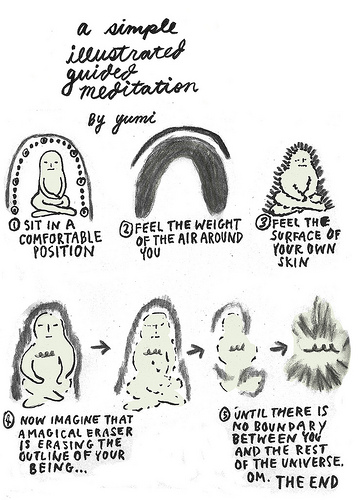 a simple
illustrated
guided
meditation
by yumi
① SIT IN A
COMFORTABLE
POSITION
② FEEL THE WEIGHT
OF THE AIR AROUND
YOU
③ FEEL THE
SURFACE OF
YOUR OWN
SKIN
④ NOW IMAGINE THAT
A MAGICAL ERASER
IS ERASING THE
OUTLINE OF YOUR
BEING...
⑤ UNTIL THERE IS
NO BOUNDARY
BETWEEN YOU
AND THE REST
OF THE UNIVERSE.
OM. THE END